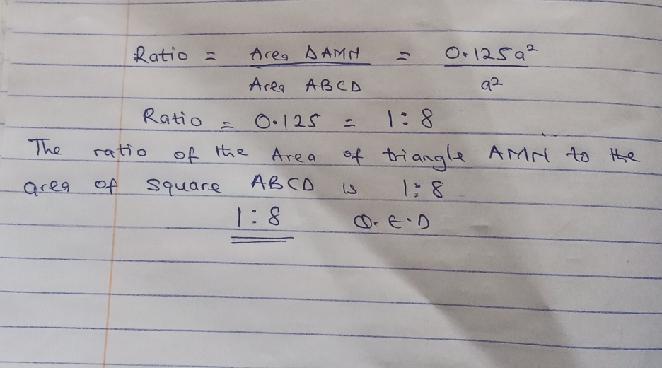 Ratio = Area ΔAMN = 0.125a²
Area ABCD a²
Ratio = 0.125 = 1:8
The ratio of the Area of triangle AMN to the
area of square ABCD is 1:8
1:8 Q.E.D